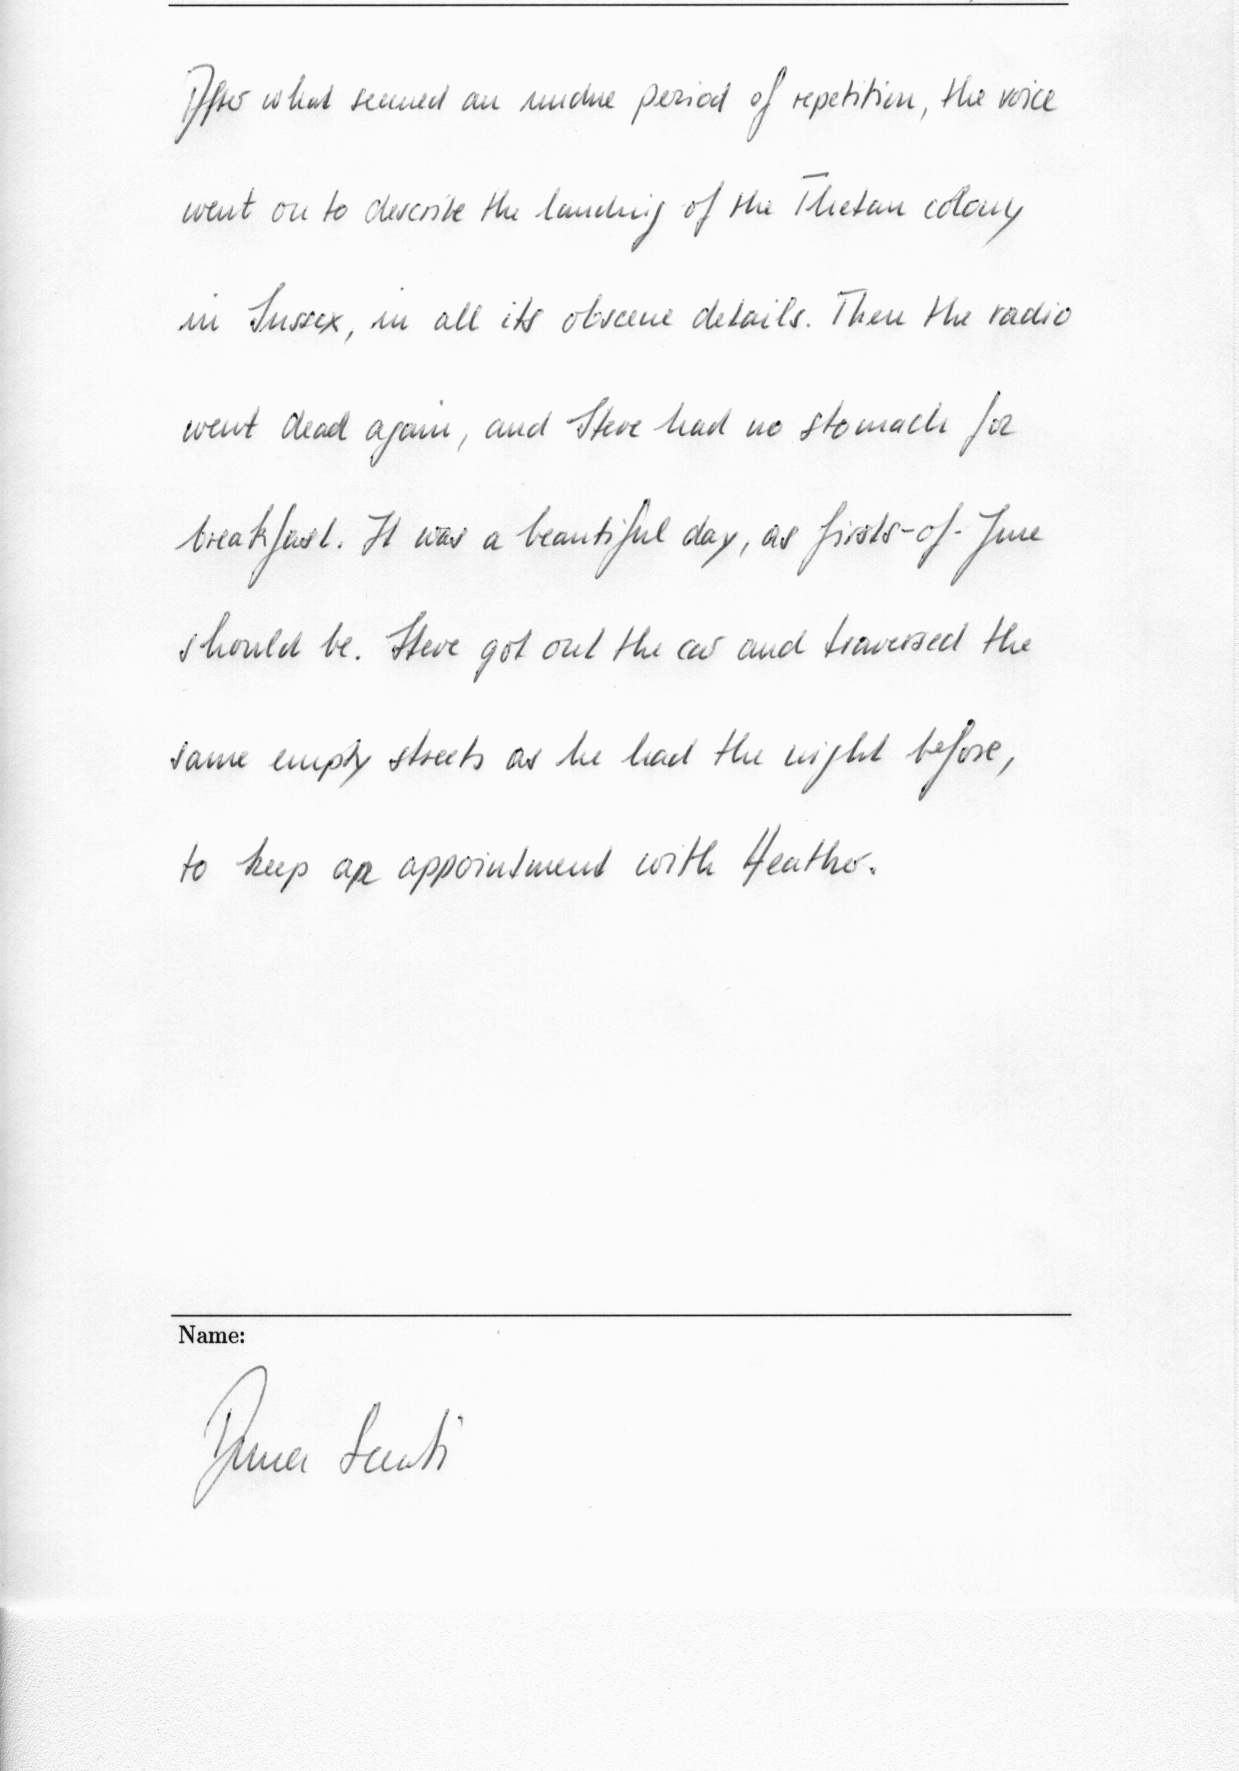 After what seemed an undue period of repetition, the voice
went on to describe the landing of the Thetan colony
in Sussex, in all its obscene details. Then the radio
went dead again, and Steve had no stomach for
breakfast. It was a beautiful day, as firsts-of-June
should be. Steve got out the car and traversed the
same empty streets as he had the night before,
to keep an appointment with Heather.
Name: